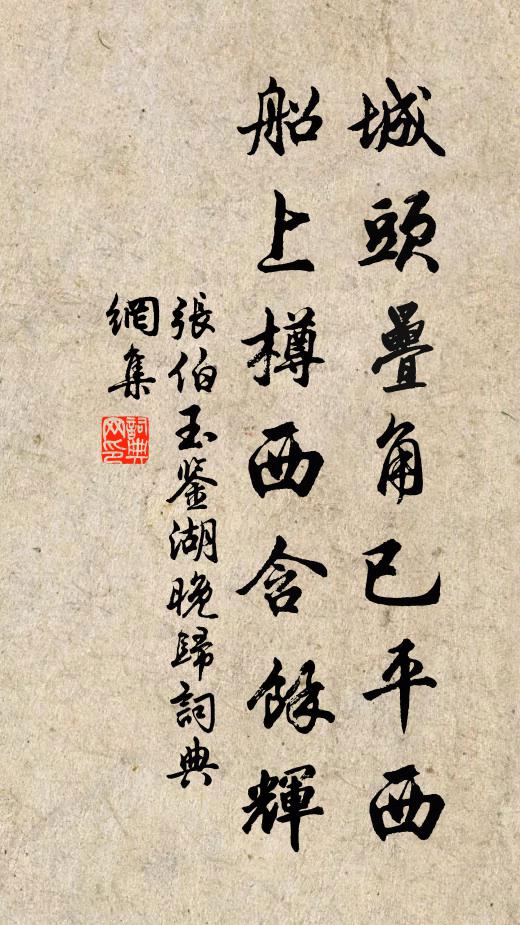 城頭疊角已平西
船上樽西含餘輝
張伯玉鉴湖晚歸詞典
網集
詞典
网印